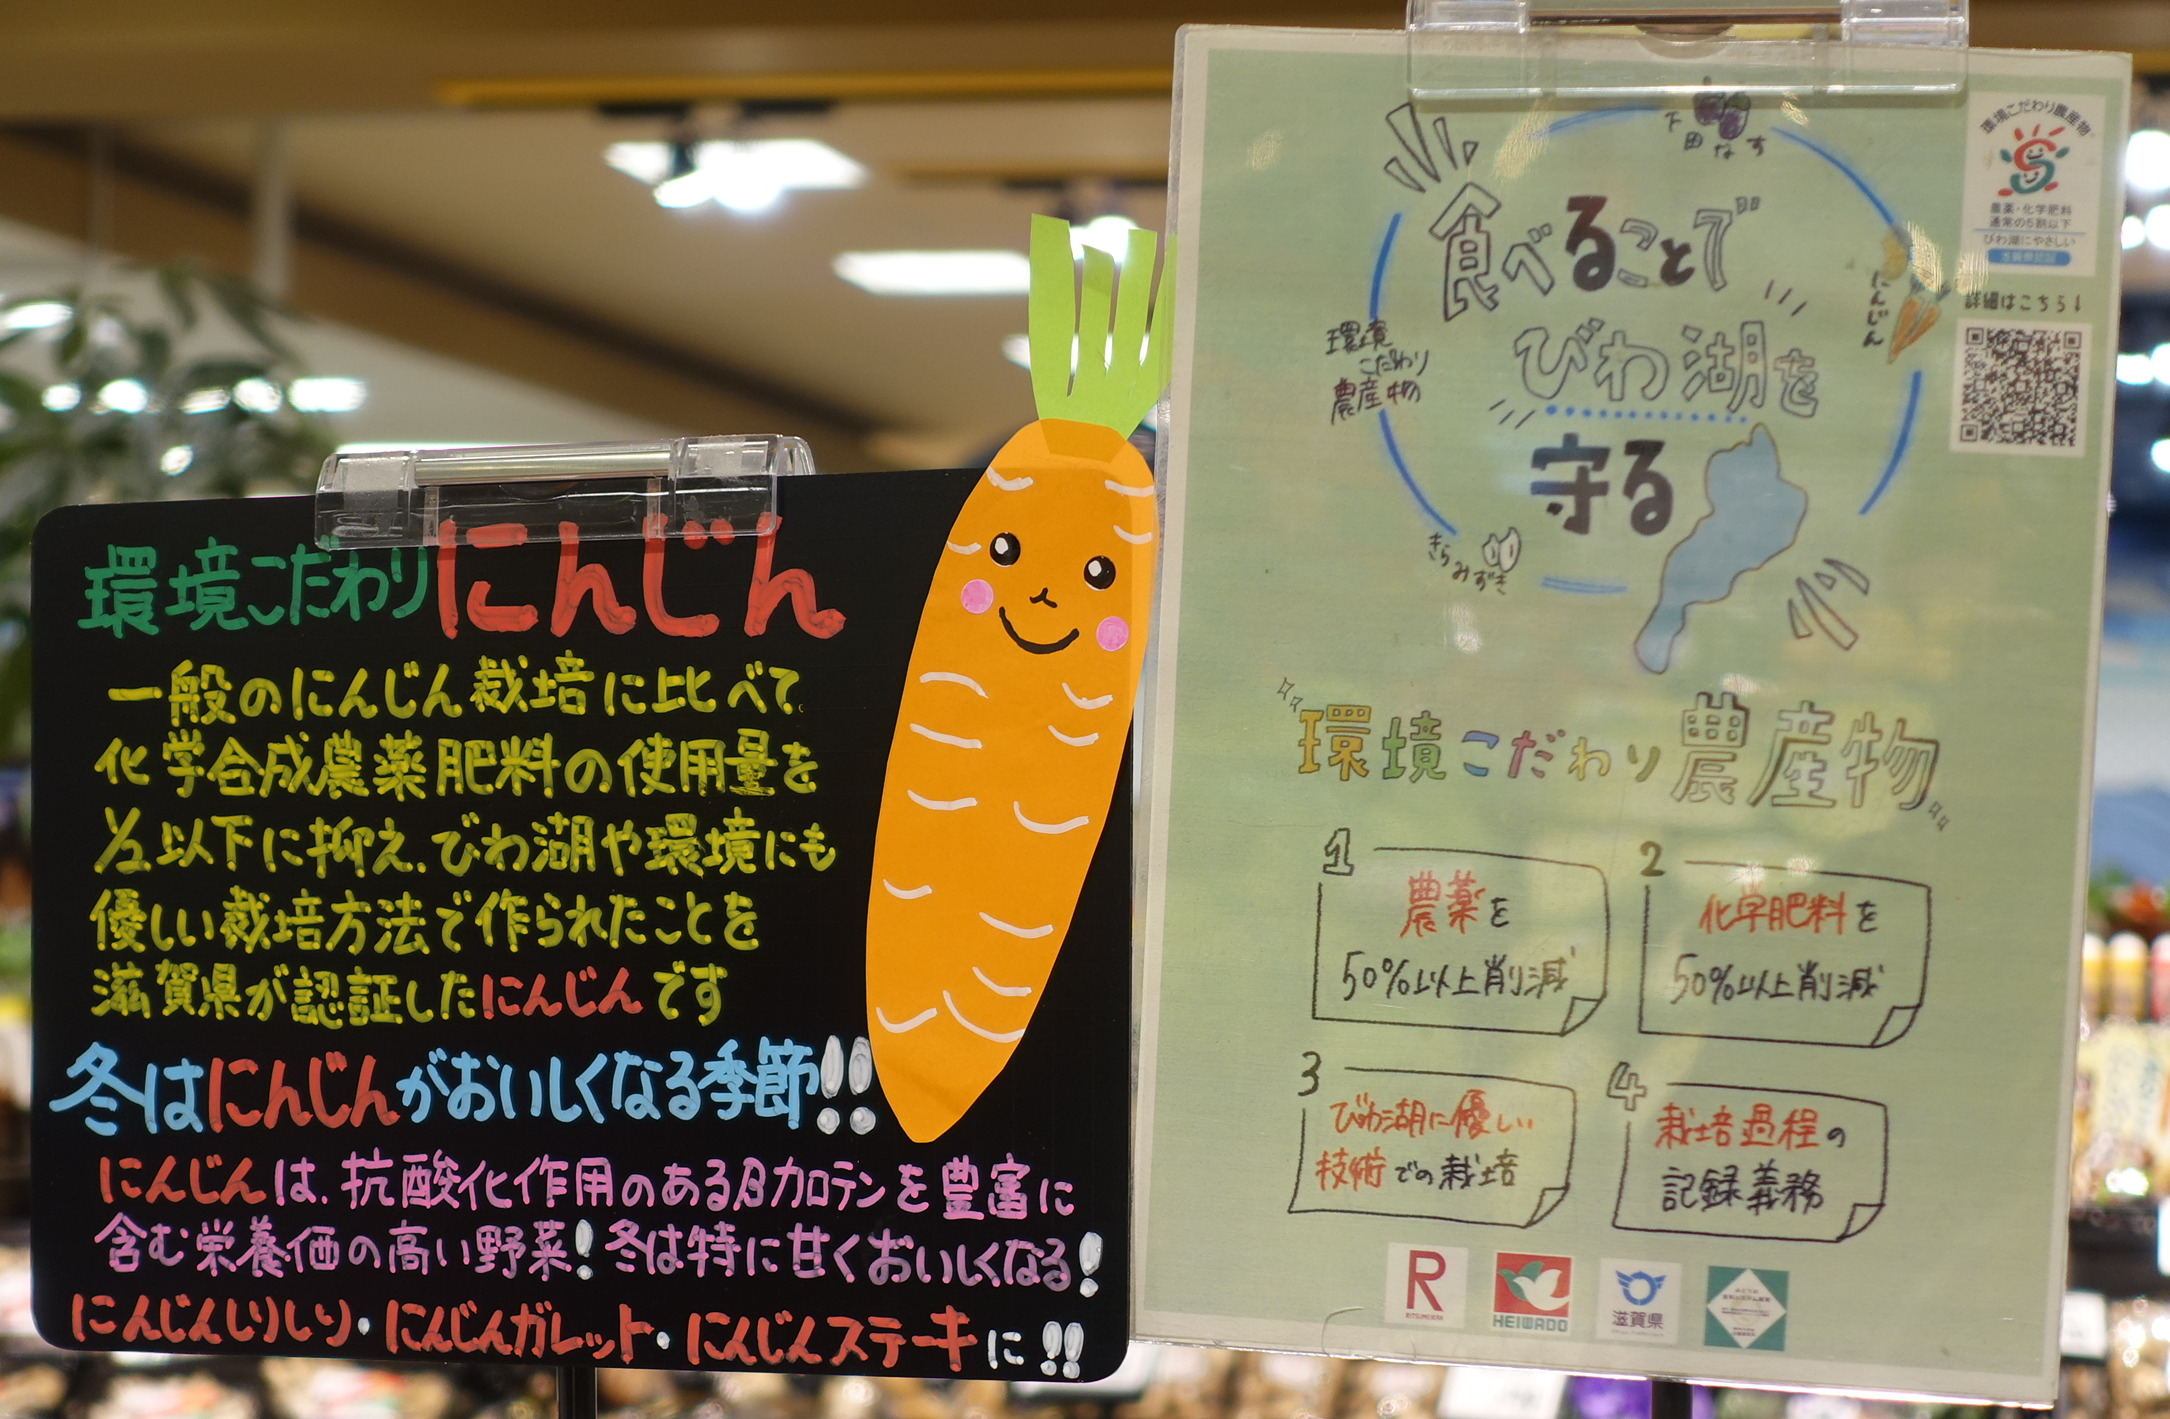 環境こだわりにんじん
一般のにんじん栽培に比べて
化学合成農薬肥料の使用量を
1/2以下に抑え、びわ湖や環境にも
優しい栽培方法で作られたことを
滋賀県が認証したにんじんです
冬はにんじんがおいしくなる季節!!
にんじんは、抗酸化作用のあるβカロテンを豊富に
含む栄養価の高い野菜!冬は特に甘くおいしくなる!
にんじんしりしり・にんじんガレット・にんじんステーキに!!
下田なす
食べることで
びわ湖を
守る
にんじん
環境
こだわり
農産物
きらみずき
環境こだわり農産物
農薬・化学肥料
通常の5割以下
びわ湖にやさしい
詳細はこちら↓
環境こだわり農産物
1
農薬を
50%以上削減
2
化学肥料を
50%以上削減
3
びわ湖に優しい
技術での栽培
4
栽培過程の
記録義務
R
RITSUMEIKAN
HEIWADO
滋賀県